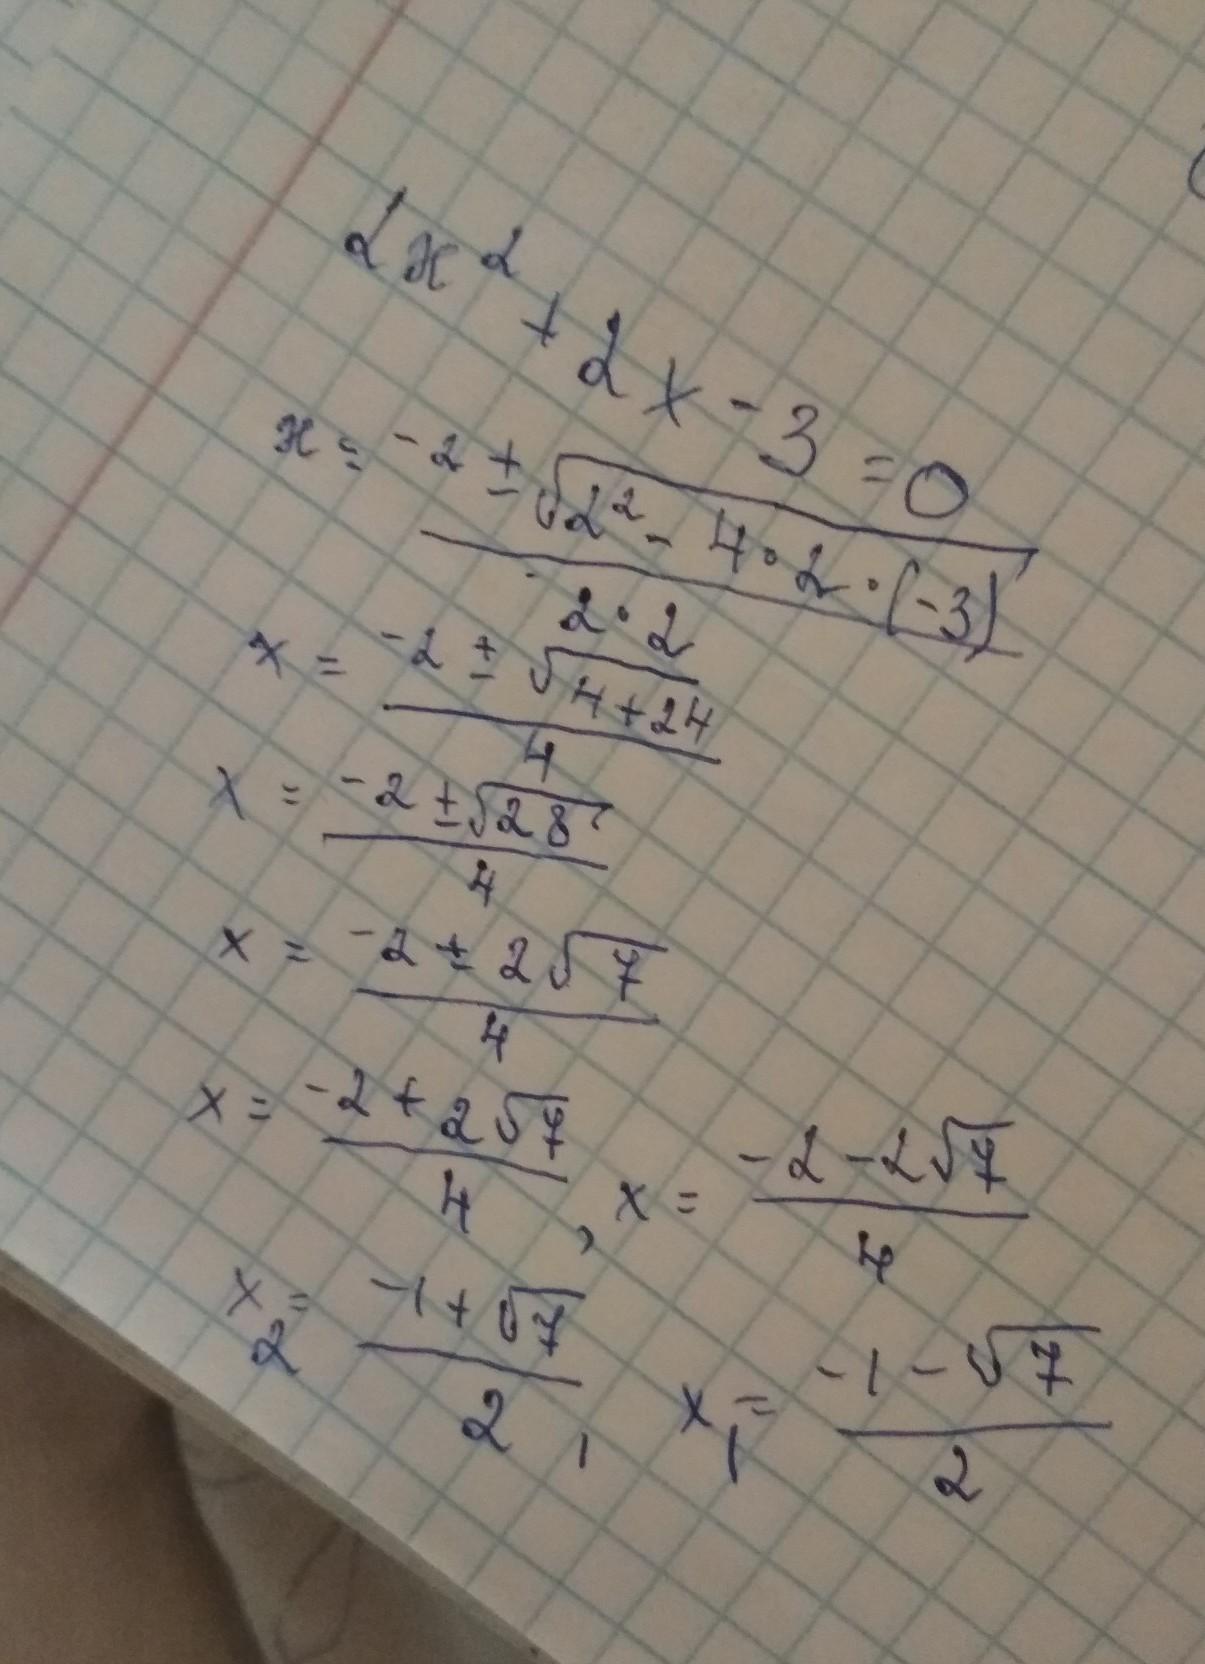 2x² + 2x - 3 = 0
x = (-2 ± √(2² - 4·2·(-3))) / (2·2)
x = (-2 ± √(4+24)) / 4
x = (-2 ± √28) / 4
x = (-2 ± 2√7) / 4
x = (-2 + 2√7) / 4 , x = (-2 - 2√7) / 4
x₂ = (-1 + √7) / 2 , x₁ = (-1 - √7) / 2